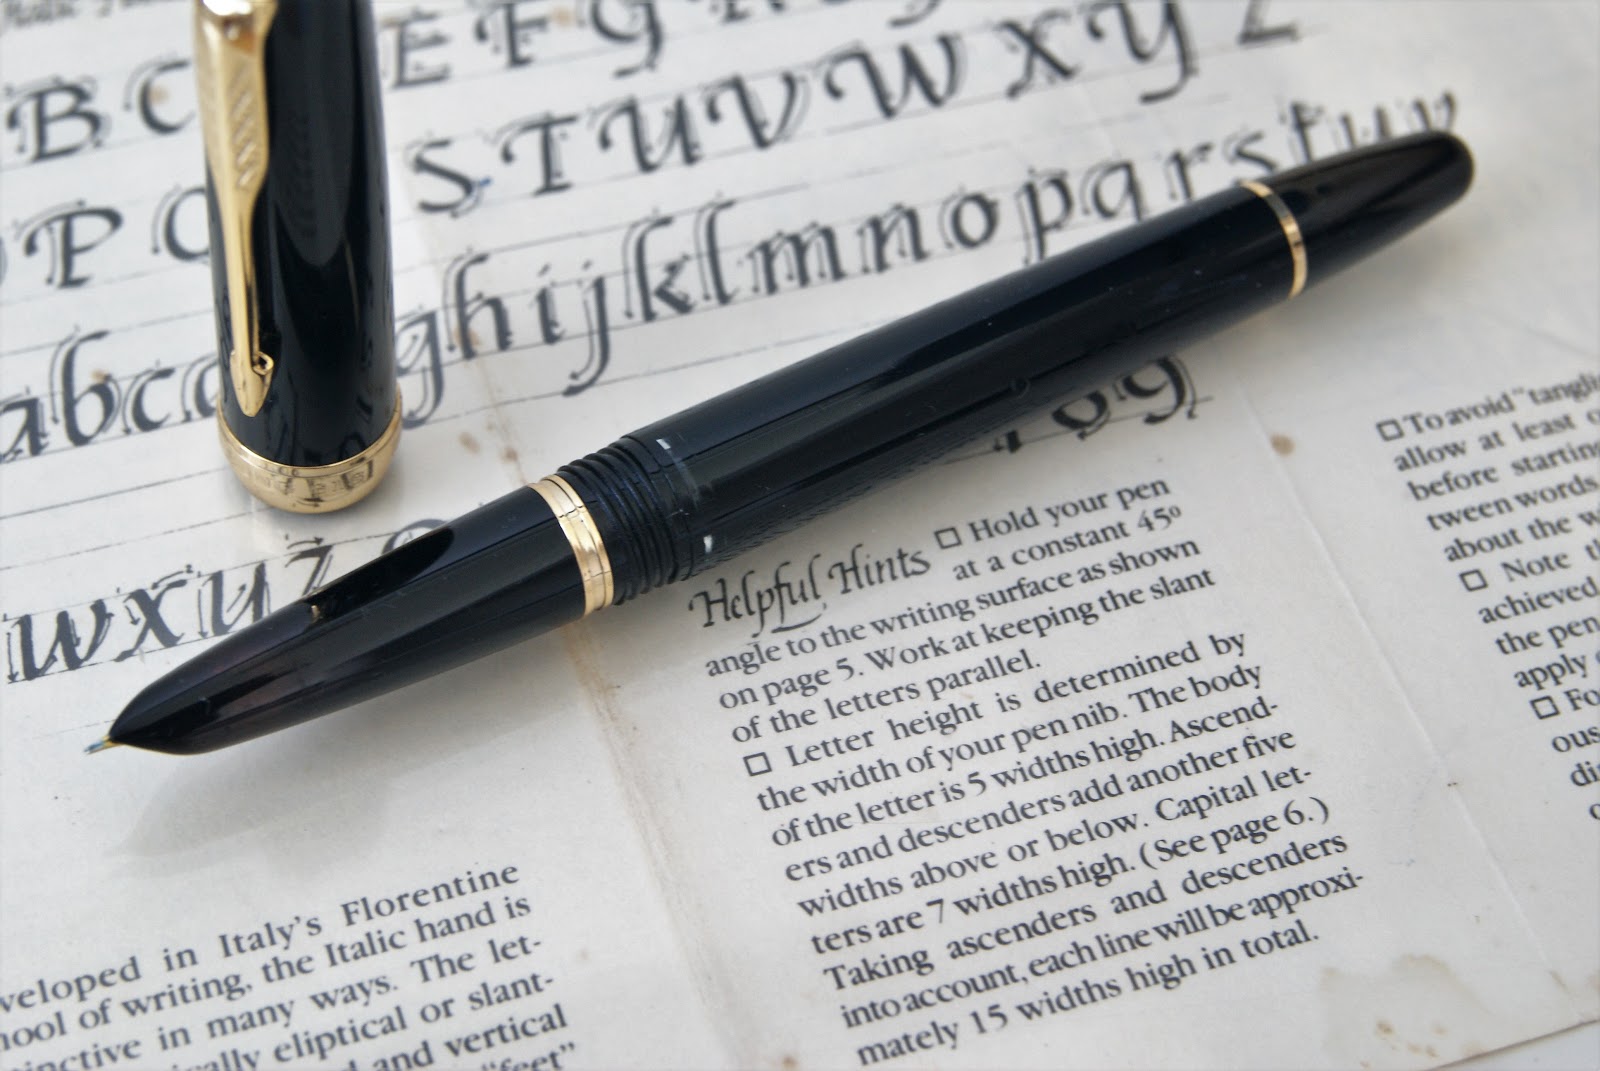 B C E F G
P S T U V W X Y Z
abcd ghijklmnopqrstuv
wxyz 89
Helpful Hints ☐ Hold your pen
at a constant 45º
angle to the writing surface as shown
on page 5. Work at keeping the slant
of the letters parallel.
☐ Letter height is determined by
the width of your pen nib. The body
of the letter is 5 widths high. Ascend-
ers and descenders add another five
widths above or below. Capital let-
ters are 7 widths high. (See page 6.)
Taking ascenders and descenders
into account, each line will be approxi-
mately 15 widths high in total.
☐ To avoid "tangli
allow at least
before starting
tween words.
about the w
☐ Note th
achieved
the pen
apply
☐ Fo
ous
di
veloped in Italy's Florentine
hool of writing, the Italic hand is
inctive in many ways. The let-
ically eliptical or slant-
and vertical
"feet"